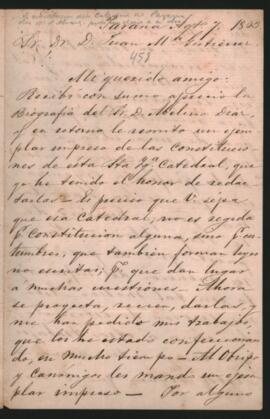 Paraná Agto 7. 1883
Sr. Dr. D. Juan Ma Gutierrez
453
Mi querido amigo:
Recibo con sumo aprecio la
Biografia del Sr. D. Avelino Diaz
y en retorno le remito un ejem
plar impreso de las Constitucio
nes de esta Sta Ya Catedral, que
yo he tenido el honor de redac
tarlas - Es preciso que V. sepa
que esa Catedral, no es regida
pr Constitucion alguna, sino pr cos
tumbres, que tambien forman leyes
no escritas; pr que dan lugar
á muchas cuestiones. Ahora
se proyecta, recien, darlas, y
me han pedido mis trabajos,
que los he estado confeccionan
do, en mucho tiempo - Al Obispo
y Canonigos les mando un ejem
plar impreso - Por alguno